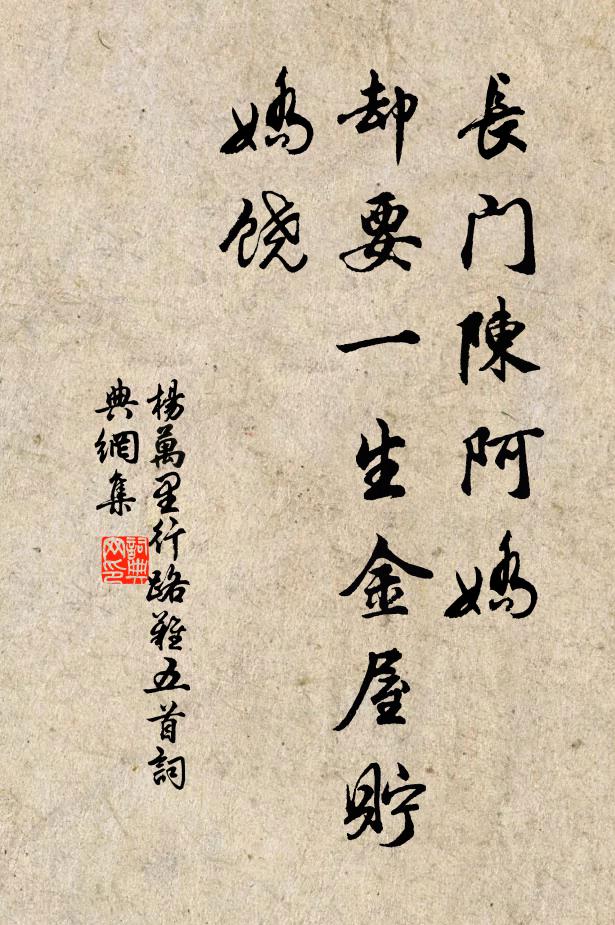 長门陳阿嬌
却要一生金屋貯
嬌饶
楊萬里行路難五首詞
典網集
詞典
网印